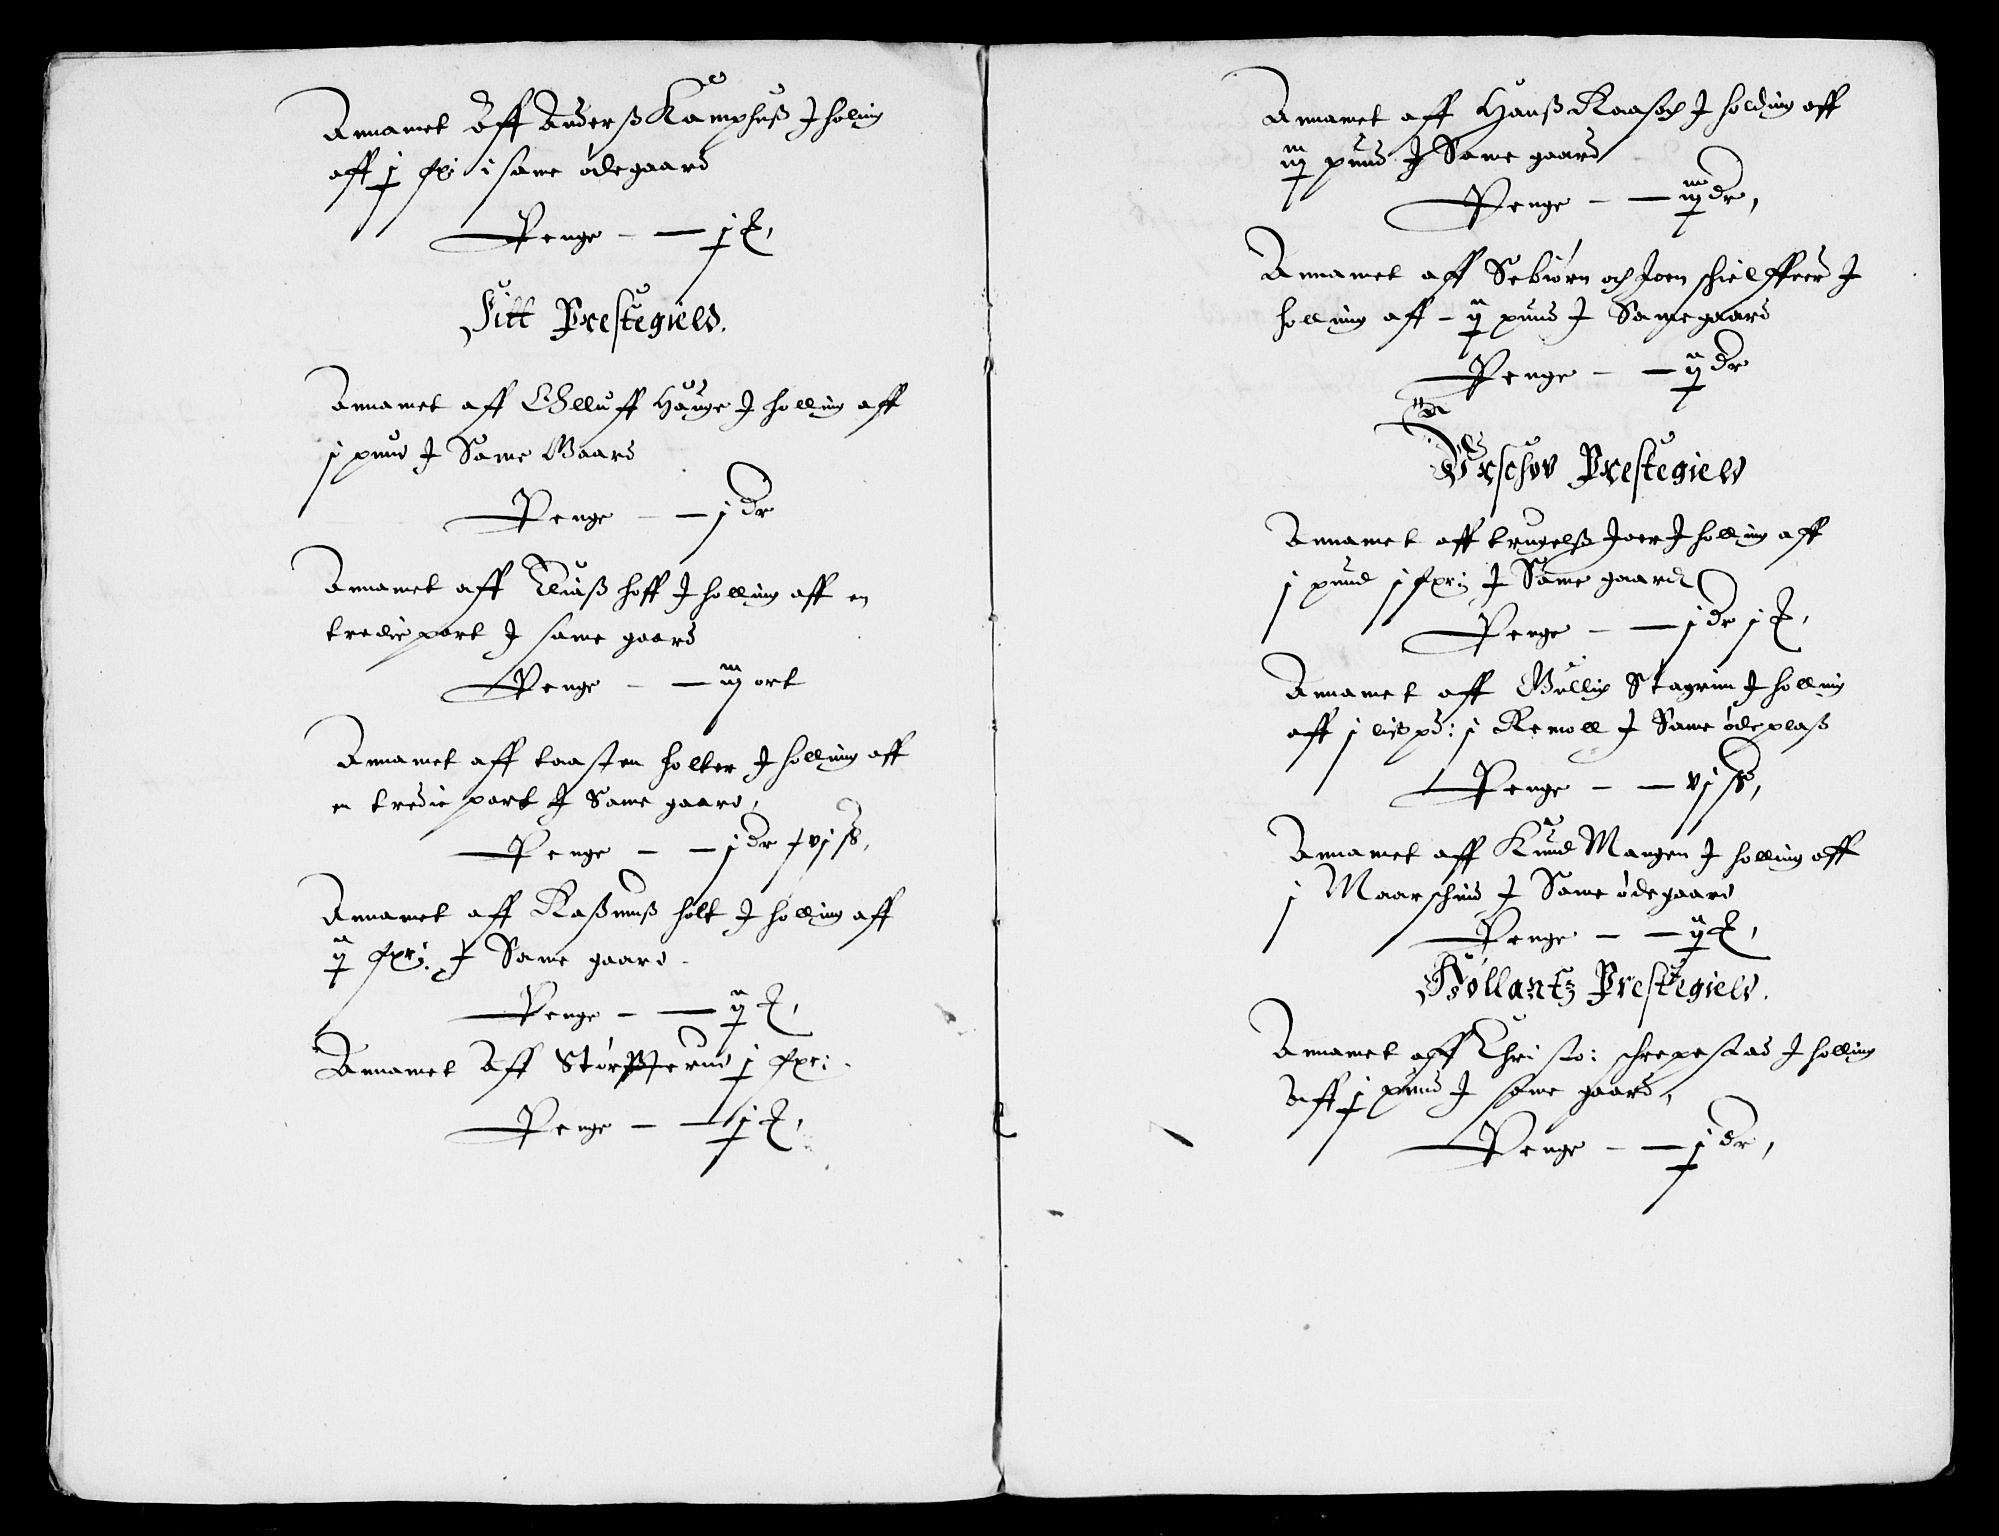 Annamet Aff Anderß Kamphuß J holing
aff j fj i same ødegaard
Penge – – j
Fitt Prestegield.
Annamet aff Olluff Hauge J holling aff
j pund J Same Gaard
Penge – – j dr
Annamet aff Eliaß hoff J holling aff en
tredie part J same gaard
Penge – – iij ort
Annamet aff taasten holter J holling aff
en tredie part J Same gaard,
Penge – – j dr xvj ß,
Annamet aff Raßmuß holt J holling aff
ij fxrj. J Same gaard.
Penge – – ij
Annamet Aff j fxr:
Penge – – j
Annamet aff Hanß J holding aff
iij pund J Same gaard
Penge – – iij dr,
Annamet aff Sebiørn och Joen J
holling aff – ij pund J Same gaard
Penge – – ij dr
Prestegield
Annamet aff trugelß Joer J holling aff
j pund j fxrj J Same gaard
Penge – – j dr j
Annamet aff Gullig Stagrim J holling
aff j lißpd: j Remoll J Same ødeplaß
Penge – – vj ß,
Annamet aff Knud Mangen J holling aff
j Maarschind J Same ødegaard
Penge – – ij
Høllantz Prestegield.
Annamet aff Christo: schrepestad J holling
Aff j pund J same gaard,
Penge – – j dr,